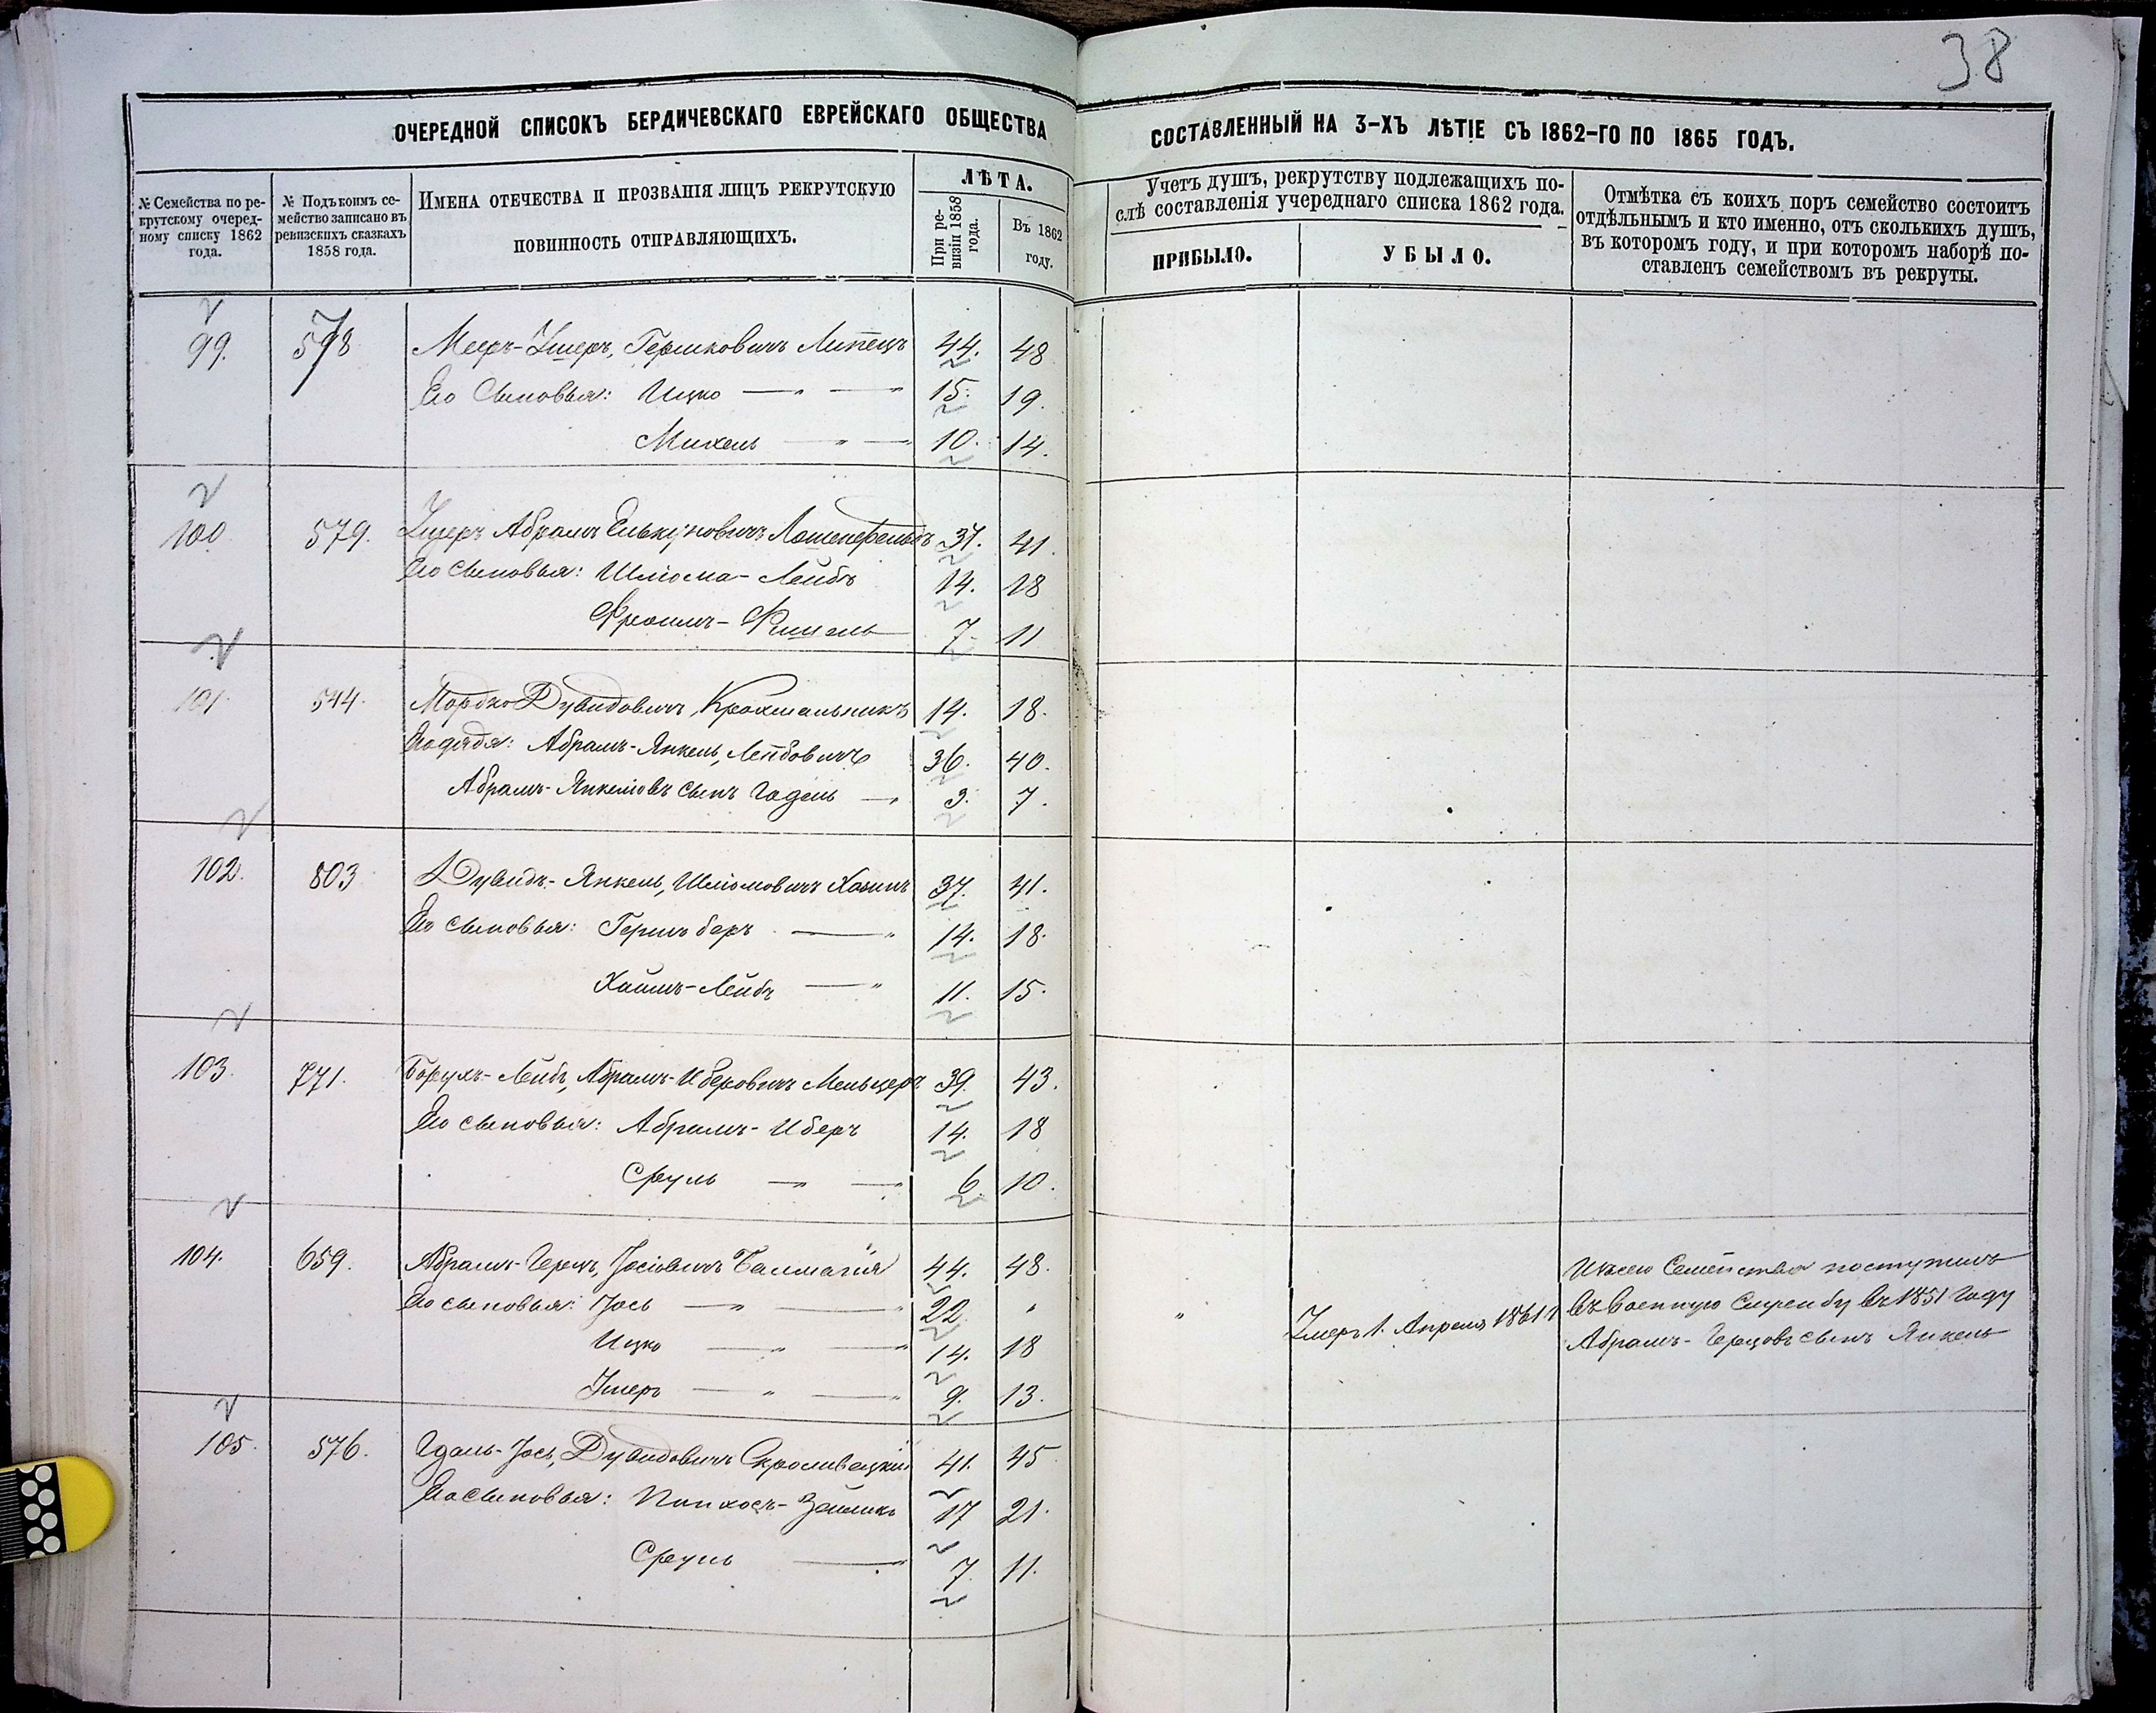 38
ОЧЕРЕДНОЙ СПИСОКЪ БЕРДИЧЕВСКАГО ЕВРЕЙСКАГО ОБЩЕСТВА СОСТАВЛЕННЫЙ НА 3-ХЪ ЛѢТІЕ СЪ 1862-ГО ПО 1865 ГОДЪ.
№ Семейства по ре-
крутскому очеред-
ному списку 1862
года.
№ Подъ коимъ се-
мейство записано въ
ревизскихъ сказкахъ
1858 года.
ИМЕНА ОТЕЧЕСТВА И ПРОЗВАНІЯ ЛИЦЪ РЕКРУТСКУЮ
ПОВИННОСТЬ ОТПРАВЛЯЮЩИХЪ.
ЛѢТА.
При ре-
визіи 1858
года.
Въ 1862
году.
Учетъ душъ, рекрутству подлежащихъ по-
слѣ составленія учереднаго списка 1862 года.
ПРИБЫЛО.
УБЫЛО.
Отмѣтка съ коихъ поръ семейство состоитъ
отдѣльнымъ и кто именно, отъ сколькихъ душъ,
въ которомъ году, и при которомъ наборѣ по-
ставленъ семействомъ въ рекруты.
99. 578 Мееръ-Ушеръ, Гершковичъ Липецъ 44. 48
Его Сыновья: Ицко — " — " 15. 19.
Михель — " — 10. 14.
100. 579. Ушеръ Абрамъ 37. 41.
Его сыновья: Шліома-Лейбъ 14. 18
Фроимъ-Фишель 7. 11
101. 544. Мордко Дувидовичъ, Крахмальникъ 14. 18.
Его дядя: Абрамъ-Янкель, Лейбовичъ 36. 40.
Абрамъ-Янкеліовъ сынъ — " 3. 7.
102. 803 Дувидъ-Янкель, Шліомовичъ 37. 41.
Его сыновья: Гершъ беръ — " 14. 18.
Хаимъ-Лейбъ — " 11. 15.
103. 771. Борухъ-Лейбъ, Абрамъ-Иберовичъ Мельцеръ 39. 43.
Его сыновья: Абрамъ-Иберъ 14. 18
Сруль — " — " 6. 10.
104. 659. Абрамъ-Герцъ, Іосіовичъ 44. 48.
Его сыновья: Іось — " — " 22. " " Умеръ 1. Апреля 1861 г
Ицко — " — " 14. 18
Ушеръ — " — " 9. 13.
Семейства поступилъ
въ военную Службу въ 1851 году
Абрамъ-Герцовъ сынъ Янкель
105. 576. Іось, Дувидовичъ 41. 45
Его сыновья: Пинхосъ-Зейликъ 17 21.
Сруль — " 7. 11.